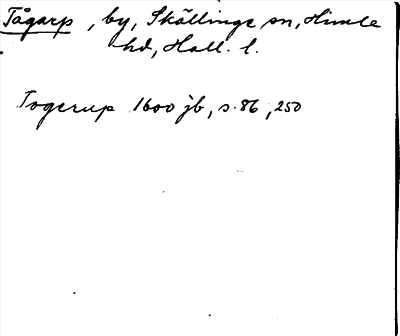 Tågarp, by, Skällinge sn, Himle
hd, Hall. l.
Togerup 1600 jb, s. 86, 250